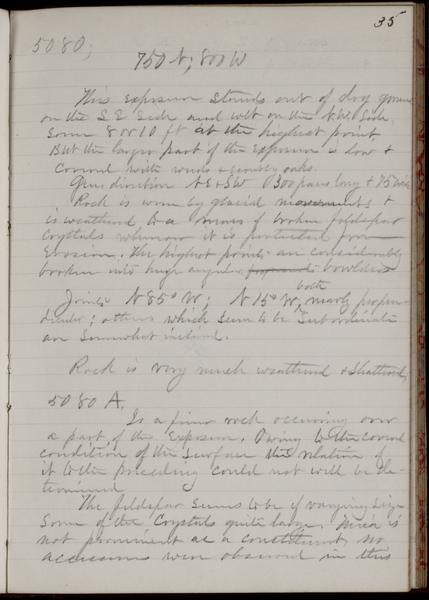 35
5080;
750 N; 800 W
This exposure stands out of dry ground
on the S.E. Side and wet on the N.W. Side
Some 8 or 10 ft at the highest point
But the larger part of the exposure is low &
Covered with weeds & scrubby oaks.
Gen. direction N.E & S.W 300 paces long & 75 wide
Rock is worn by glacial movements &
is weathered to a mass of broken feldspar
Crystals wherever it is protected from
Erosion. The highest points are considerably
broken into huge angular bowlders
both
Joints N 85° W; N 15° W, nearly perpen-
dicular; others which seem to be Subordinate
are Somewhat inclined.
Rock is very much weathered & Shattered,
5080 A.
Is a finer rock occurring over
a part of the Exposure. Owing to the covered
condition of the Surface the relation of
it to the preceding could not well be de-
termined
The feldspar seems to be of varying size
Some of the Crystals quite large. Mica is
not prominent as a constituent, no
accessories were observed in this